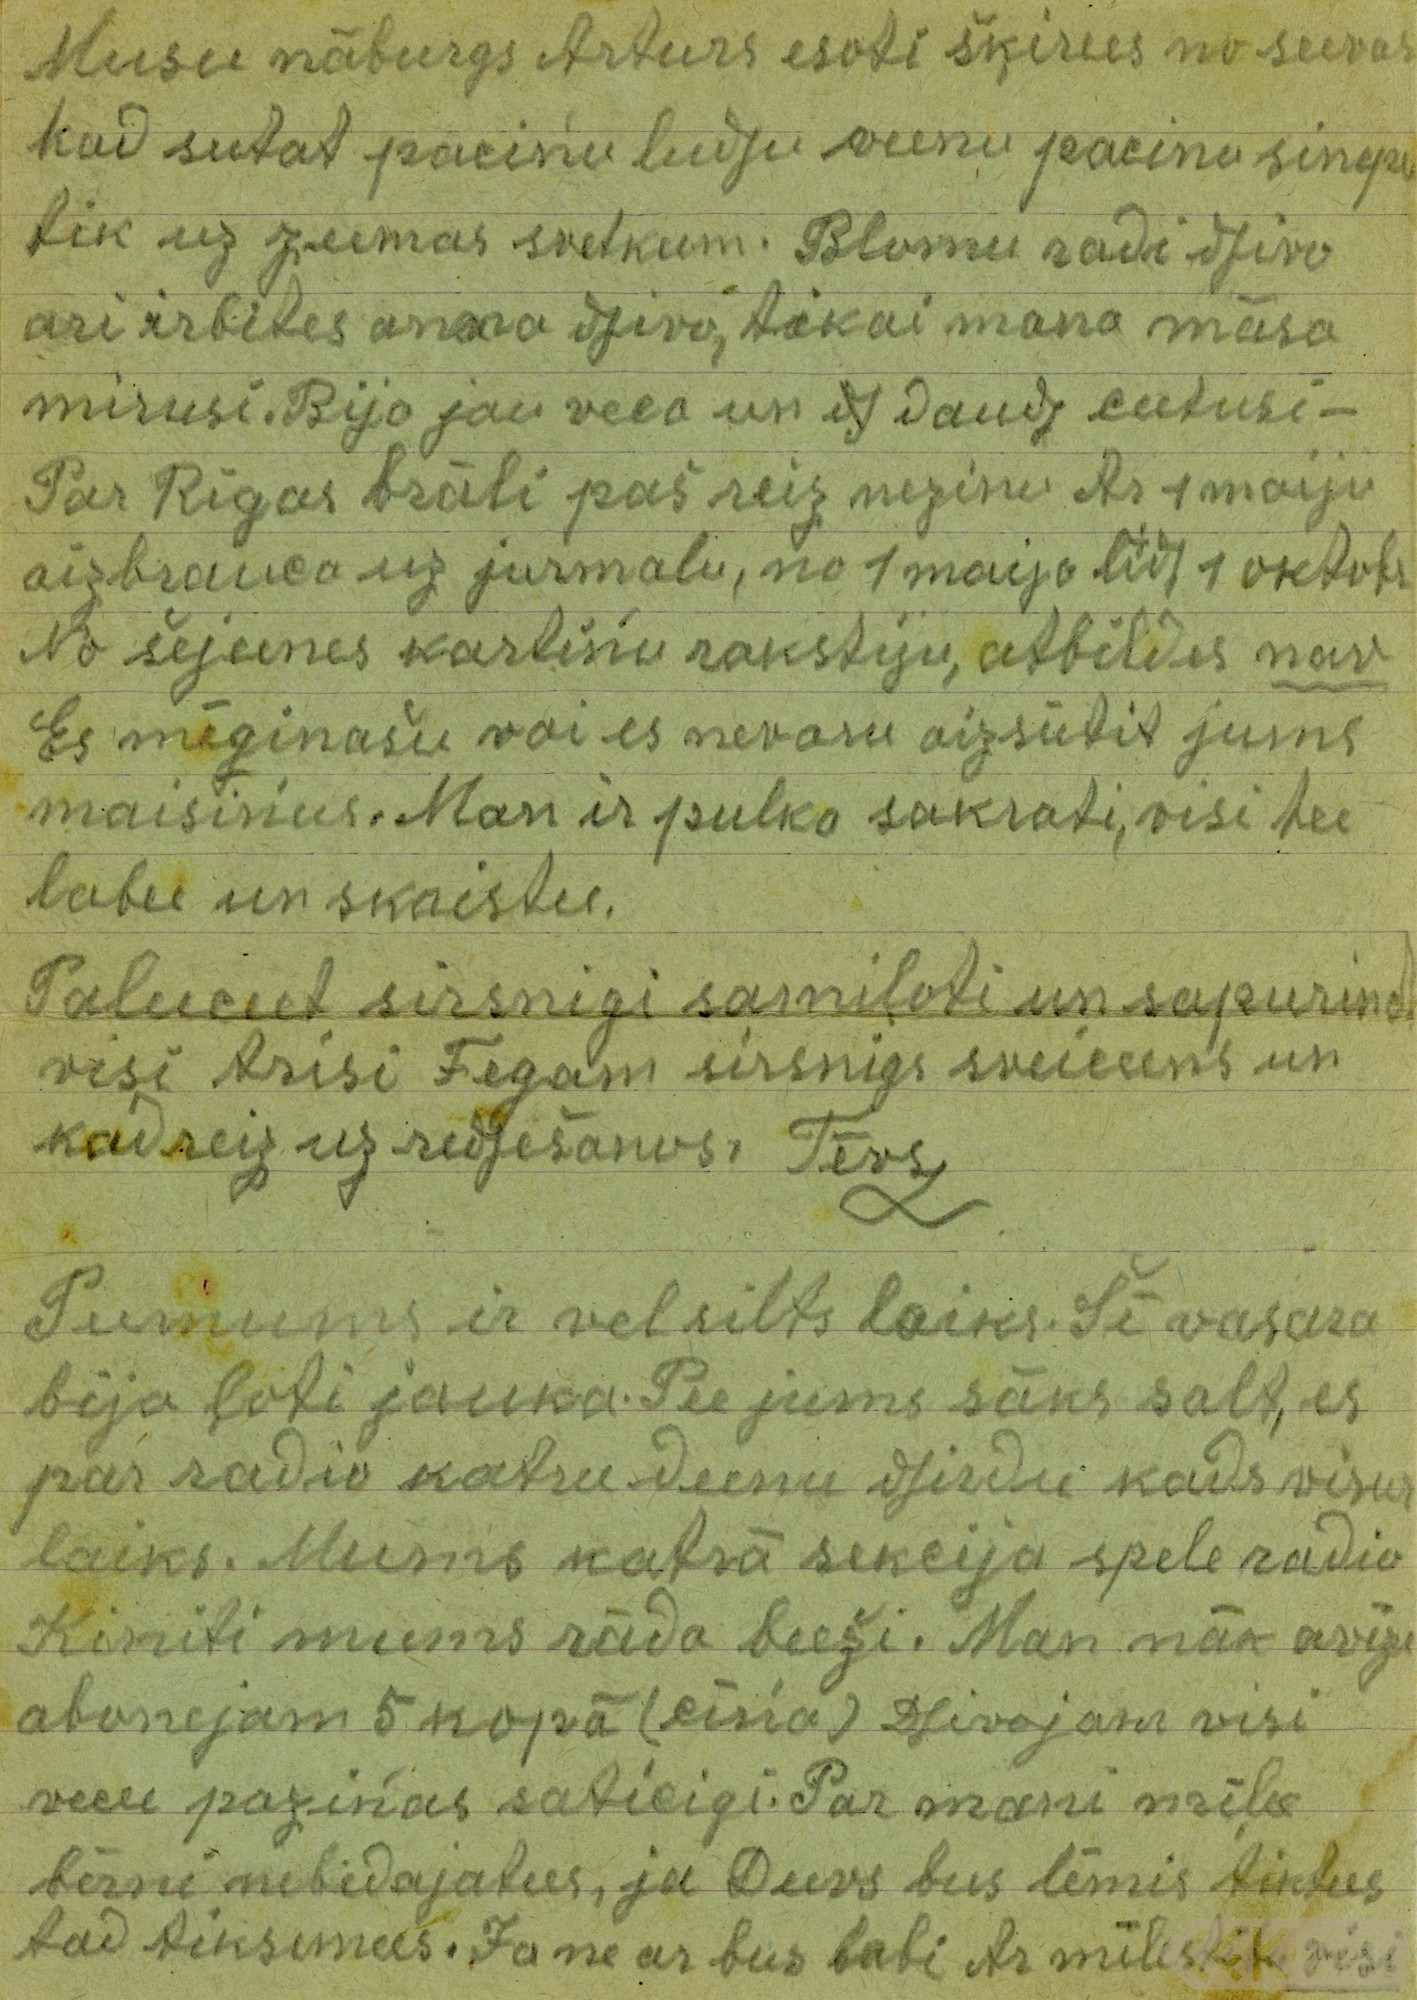 Musu nāburgs Arturs esoti šķirees no seevas
kad sutat pacinu ludsu veenu pacinu
tik uz zeemas svetkum. Blomu radi dsivo
ari irbites anna dsivo, tikai mana māsa
mirusi. Bija jau veca un daudz ceetusi –
Par Rīgas brāli paš reiz nezinu Ar 1 maiju
aizbrauca uz jurmalu, no 1 maija līds 1 oktobr
No šejeenes kartiņu rakstiju, atbildes nav
Es mēginašu vai es nevaru aizsūtit jums
maisiņus. Man ir pulka sakrati, visi tee
labee un skaistee.
Paleeceet sirsnigi samiloti un sapurinati
visi trisi Fegam sirsnigs sveiceens un
kadreiz uz redsešanos. Tēvs
Pee mums ir vel silts laiks. Šī vasara
bija ļoti jauka. Pee jums sāks salt, es
par radio katru deenu dsirdu kads visur
laiks. Mums katrā sekcija spele radio
Kinniti mums rāda beeži. Man nāk avīze
abonejam 5 kopā (cīņa) Dsivojam visi
vecee paziņas saticigi. Par mani mīlee
bērni nebēdajatees, ja Deevs bus lēmis tiktees
tad tiksimees. Ja ne ar bus labi Ar mīlestibu visi